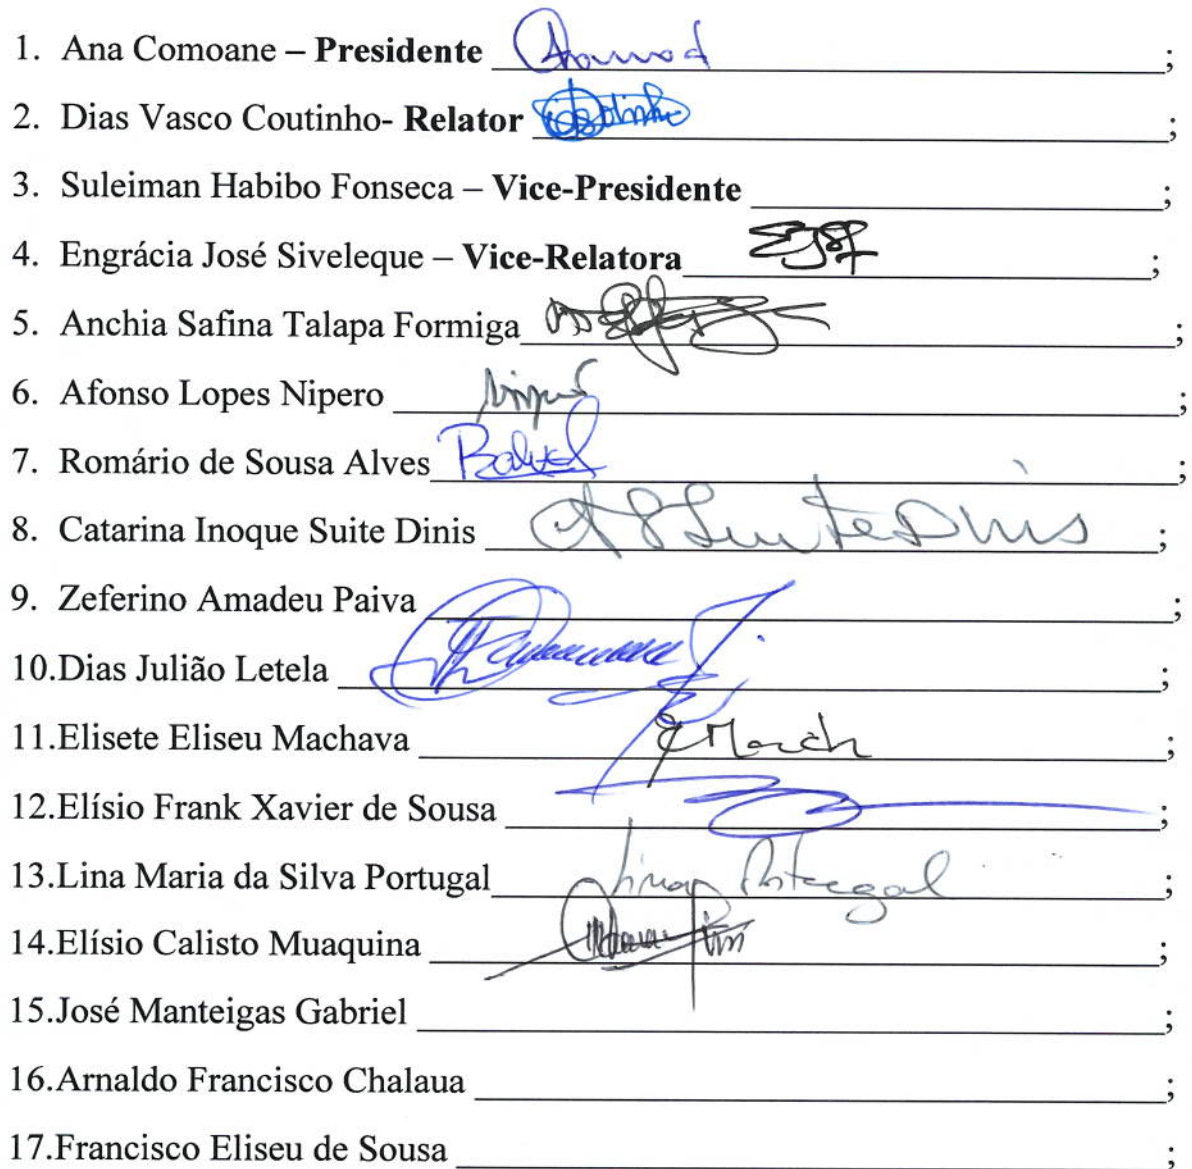 1. Ana Comoane – Presidente ;
2. Dias Vasco Coutinho- Relator ;
3. Suleiman Habibo Fonseca – Vice-Presidente ;
4. Engrácia José Siveleque – Vice-Relatora ;
5. Anchia Safina Talapa Formiga ;
6. Afonso Lopes Nipero ;
7. Romário de Sousa Alves ;
8. Catarina Inoque Suite Dinis Suite Dinis ;
9. Zeferino Amadeu Paiva ;
10.Dias Julião Letela ;
11.Elisete Eliseu Machava ;
12.Elísio Frank Xavier de Sousa ;
13.Lina Maria da Silva Portugal Lina Portugal ;
14.Elísio Calisto Muaquina ;
15.José Manteigas Gabriel ;
16.Arnaldo Francisco Chalaua ;
17.Francisco Eliseu de Sousa ;